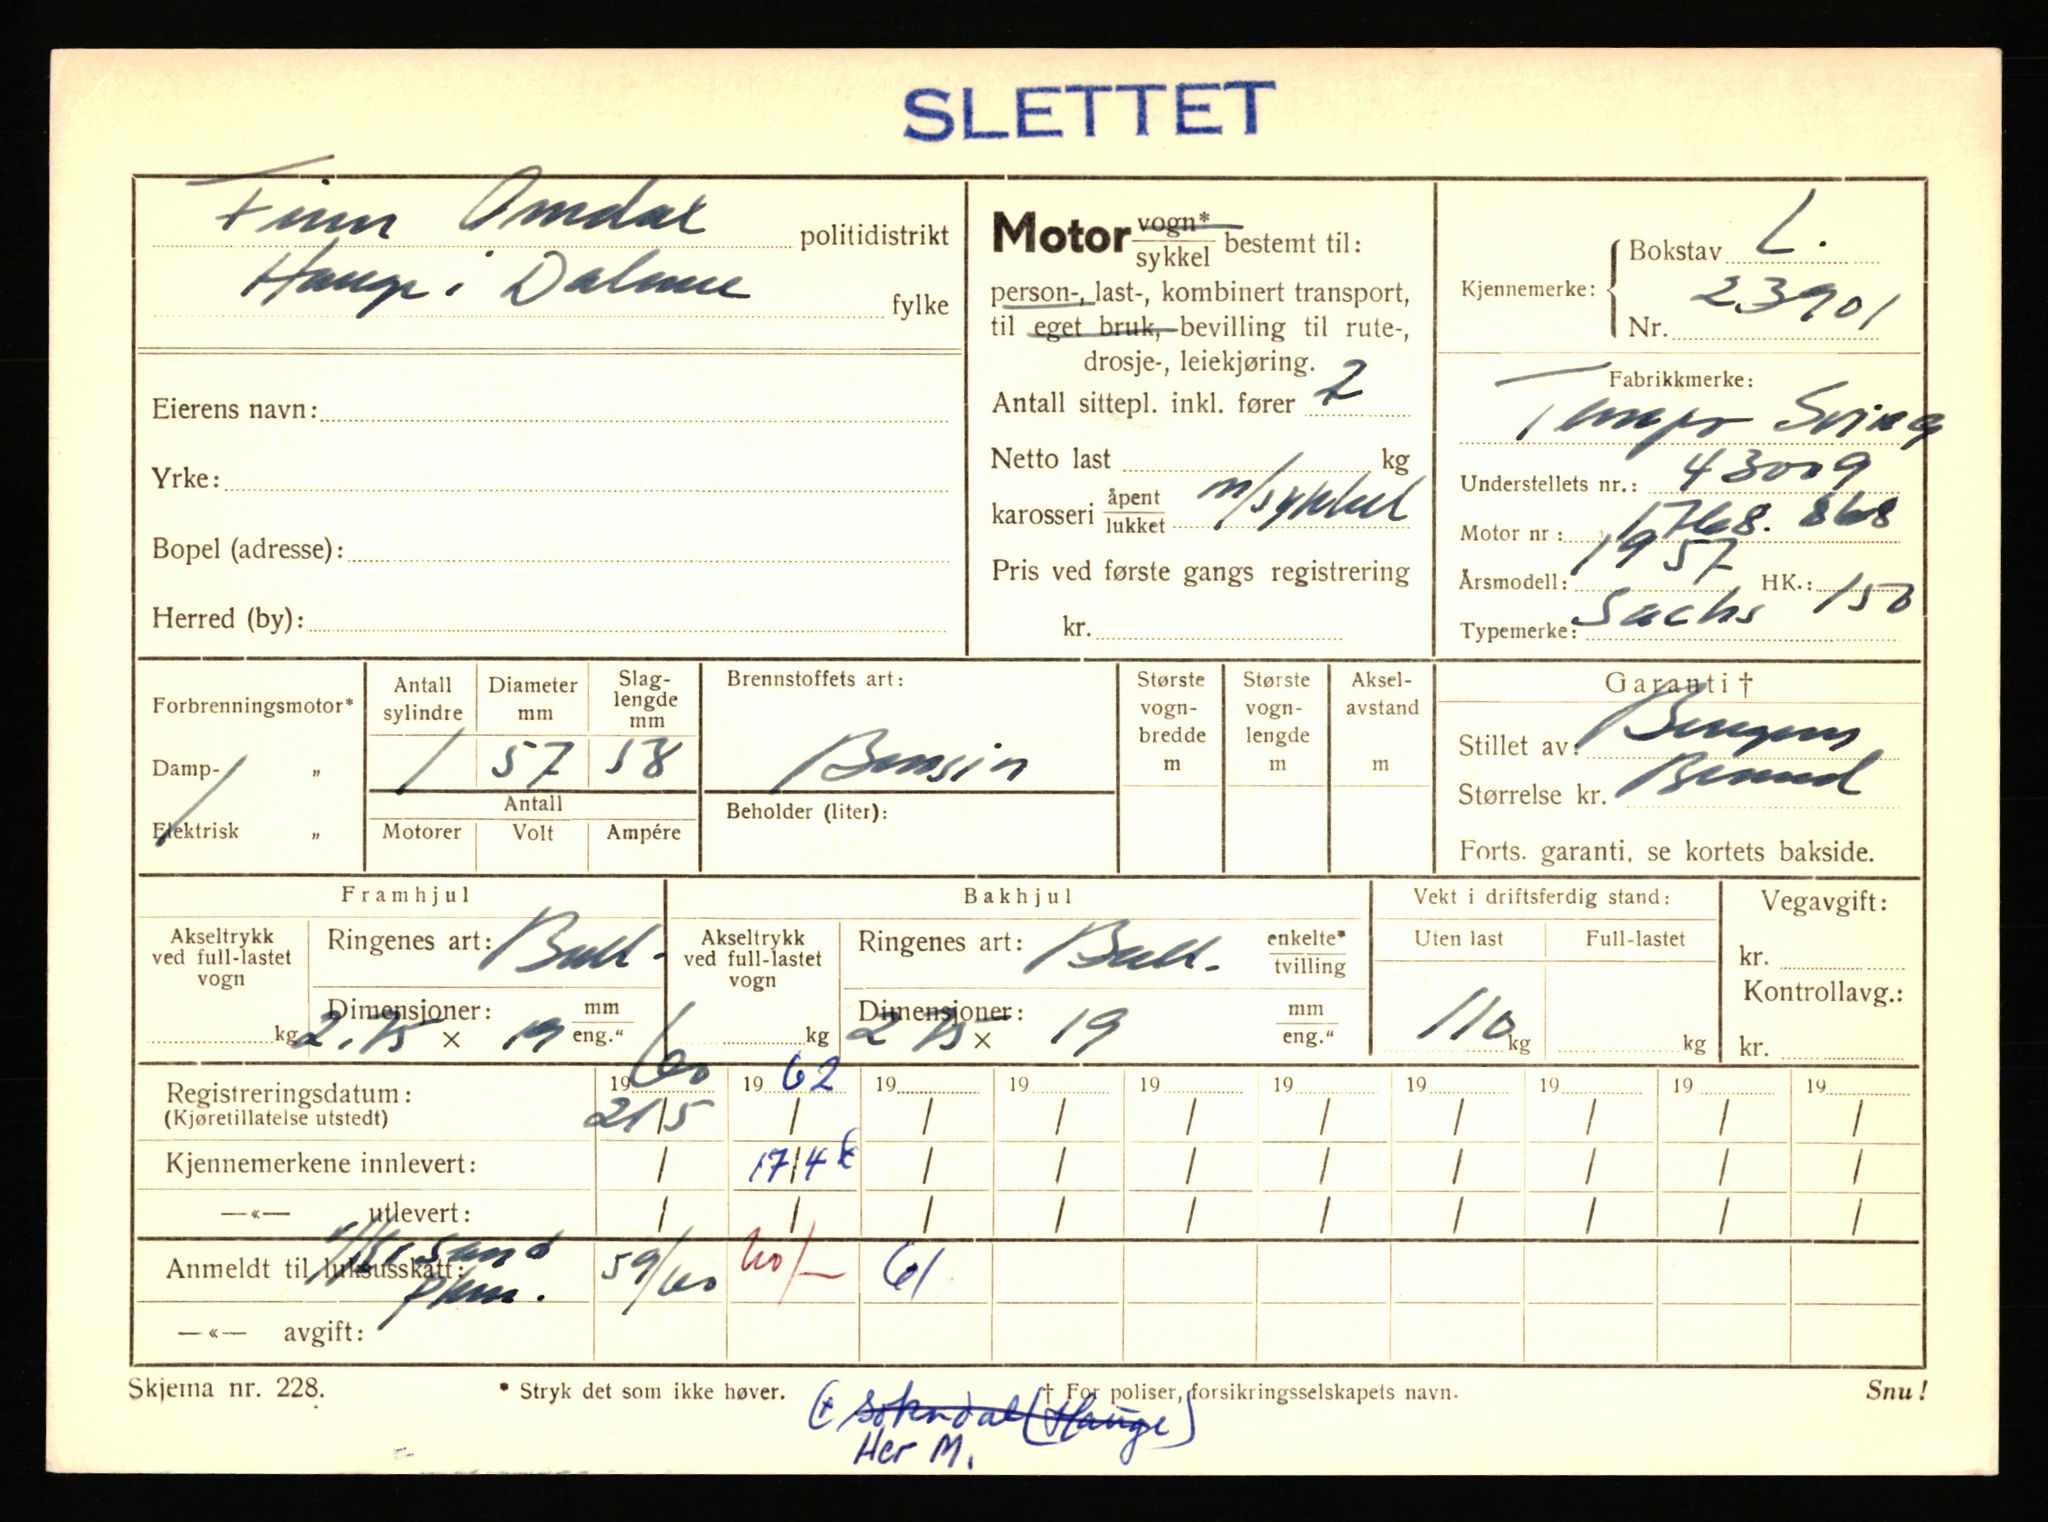 SLETTET
Finn Omdal politidistrikt
Hauge i Dalane fylke
Eierens navn:
Yrke:
Bopel (adresse):
Herred (by):
Motor vogn* / sykkel bestemt til:
person-, last-, kombinert transport,
til eget bruk, bevilling til rute-,
drosje-, leiekjøring.
Antall sittepl. inkl. fører 2
Netto last kg
karosseri åpent / lukket m/sykkel
Pris ved første gangs registrering
kr.
Kjennemerke: Bokstav L.
Nr. 23901
Fabrikkmerke:
Tempo Sving
Understellets nr.: 43009
Motor nr: 1768.868
Årsmodell: 1957 HK.:
Typemerke: Sachs 150
Forbrenningsmotor*
Damp- „
Elektrisk „
Antall sylindre Diameter mm Slag-lengde mm
1 57 58
Antall
Motorer Volt Ampére
Brennstoffets art:
Bensin
Beholder (liter):
Største vogn-bredde m
Største vogn-lengde m
Aksel-avstand m
Garanti †
Stillet av: Bergens
Størrelse kr. Brannd
Forts. garanti, se kortets bakside.
Framhjul
Akseltrykk ved full-lastet vogn kg
Ringenes art: Ball.
Dimensjoner: 2.75 x 19 mm / eng."
Bakhjul
Akseltrykk ved full-lastet vogn kg
Ringenes art: Ball. enkelte* / tvilling
Dimensjoner: 2 75 x 19 mm / eng."
Vekt i driftsferdig stand:
Uten last Full-lastet
110 kg kg
Vegavgift:
kr.
Kontrollavg.:
kr.
Registreringsdatum: 1960 1962 19 19 19 19 19 19 19 19
(Kjøretillatelse utstedt) 21/5 / / / / / / / / /
Kjennemerkene innlevert: / 17/4 / / / / / / / /
—«— utlevert: / / / / / / / / / /
Kr.sand
Anmeldt til luksusskatt: 59/60 60/— 61
pkm.
—«— avgift:
Skjema nr. 228. * Stryk det som ikke høver. † For poliser, forsikringsselskapets navn. Snu!
Sokndal (Hauge)
Her M.